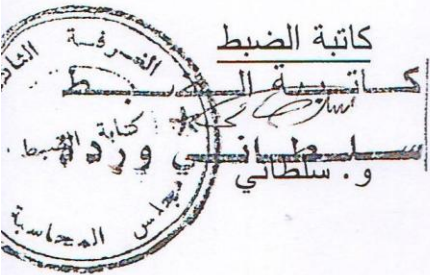 كاتبة الضبط
كاتبة الضبط
سلطاني وردة
و. سلطاني
الغرفة
كتابة الضبط
مجلس المحاسبة